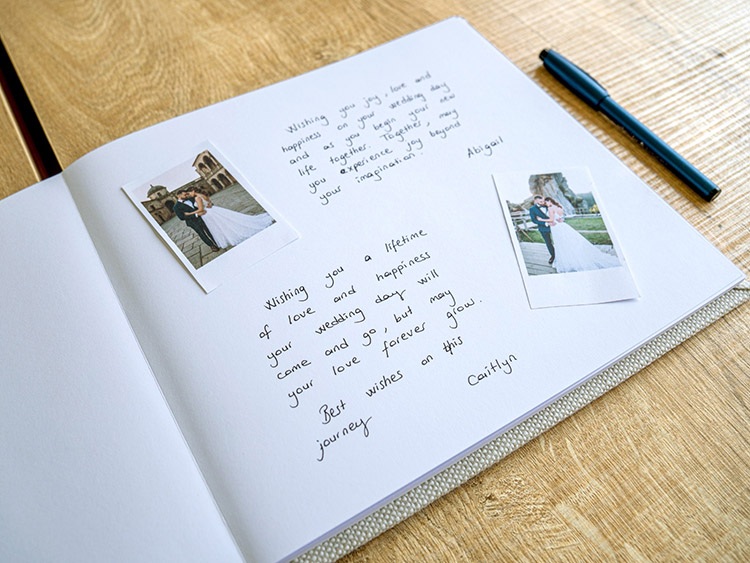 Wishing you joy, love and
happiness on your wedding day
and as you begin your new
life together. Together, may
you experience joy beyond
your imagination.
Abigail
Wishing you a lifetime
of love and happiness
your wedding day will
come and go, but may
your love forever grow.
Best wishes on this
journey
Caitlyn